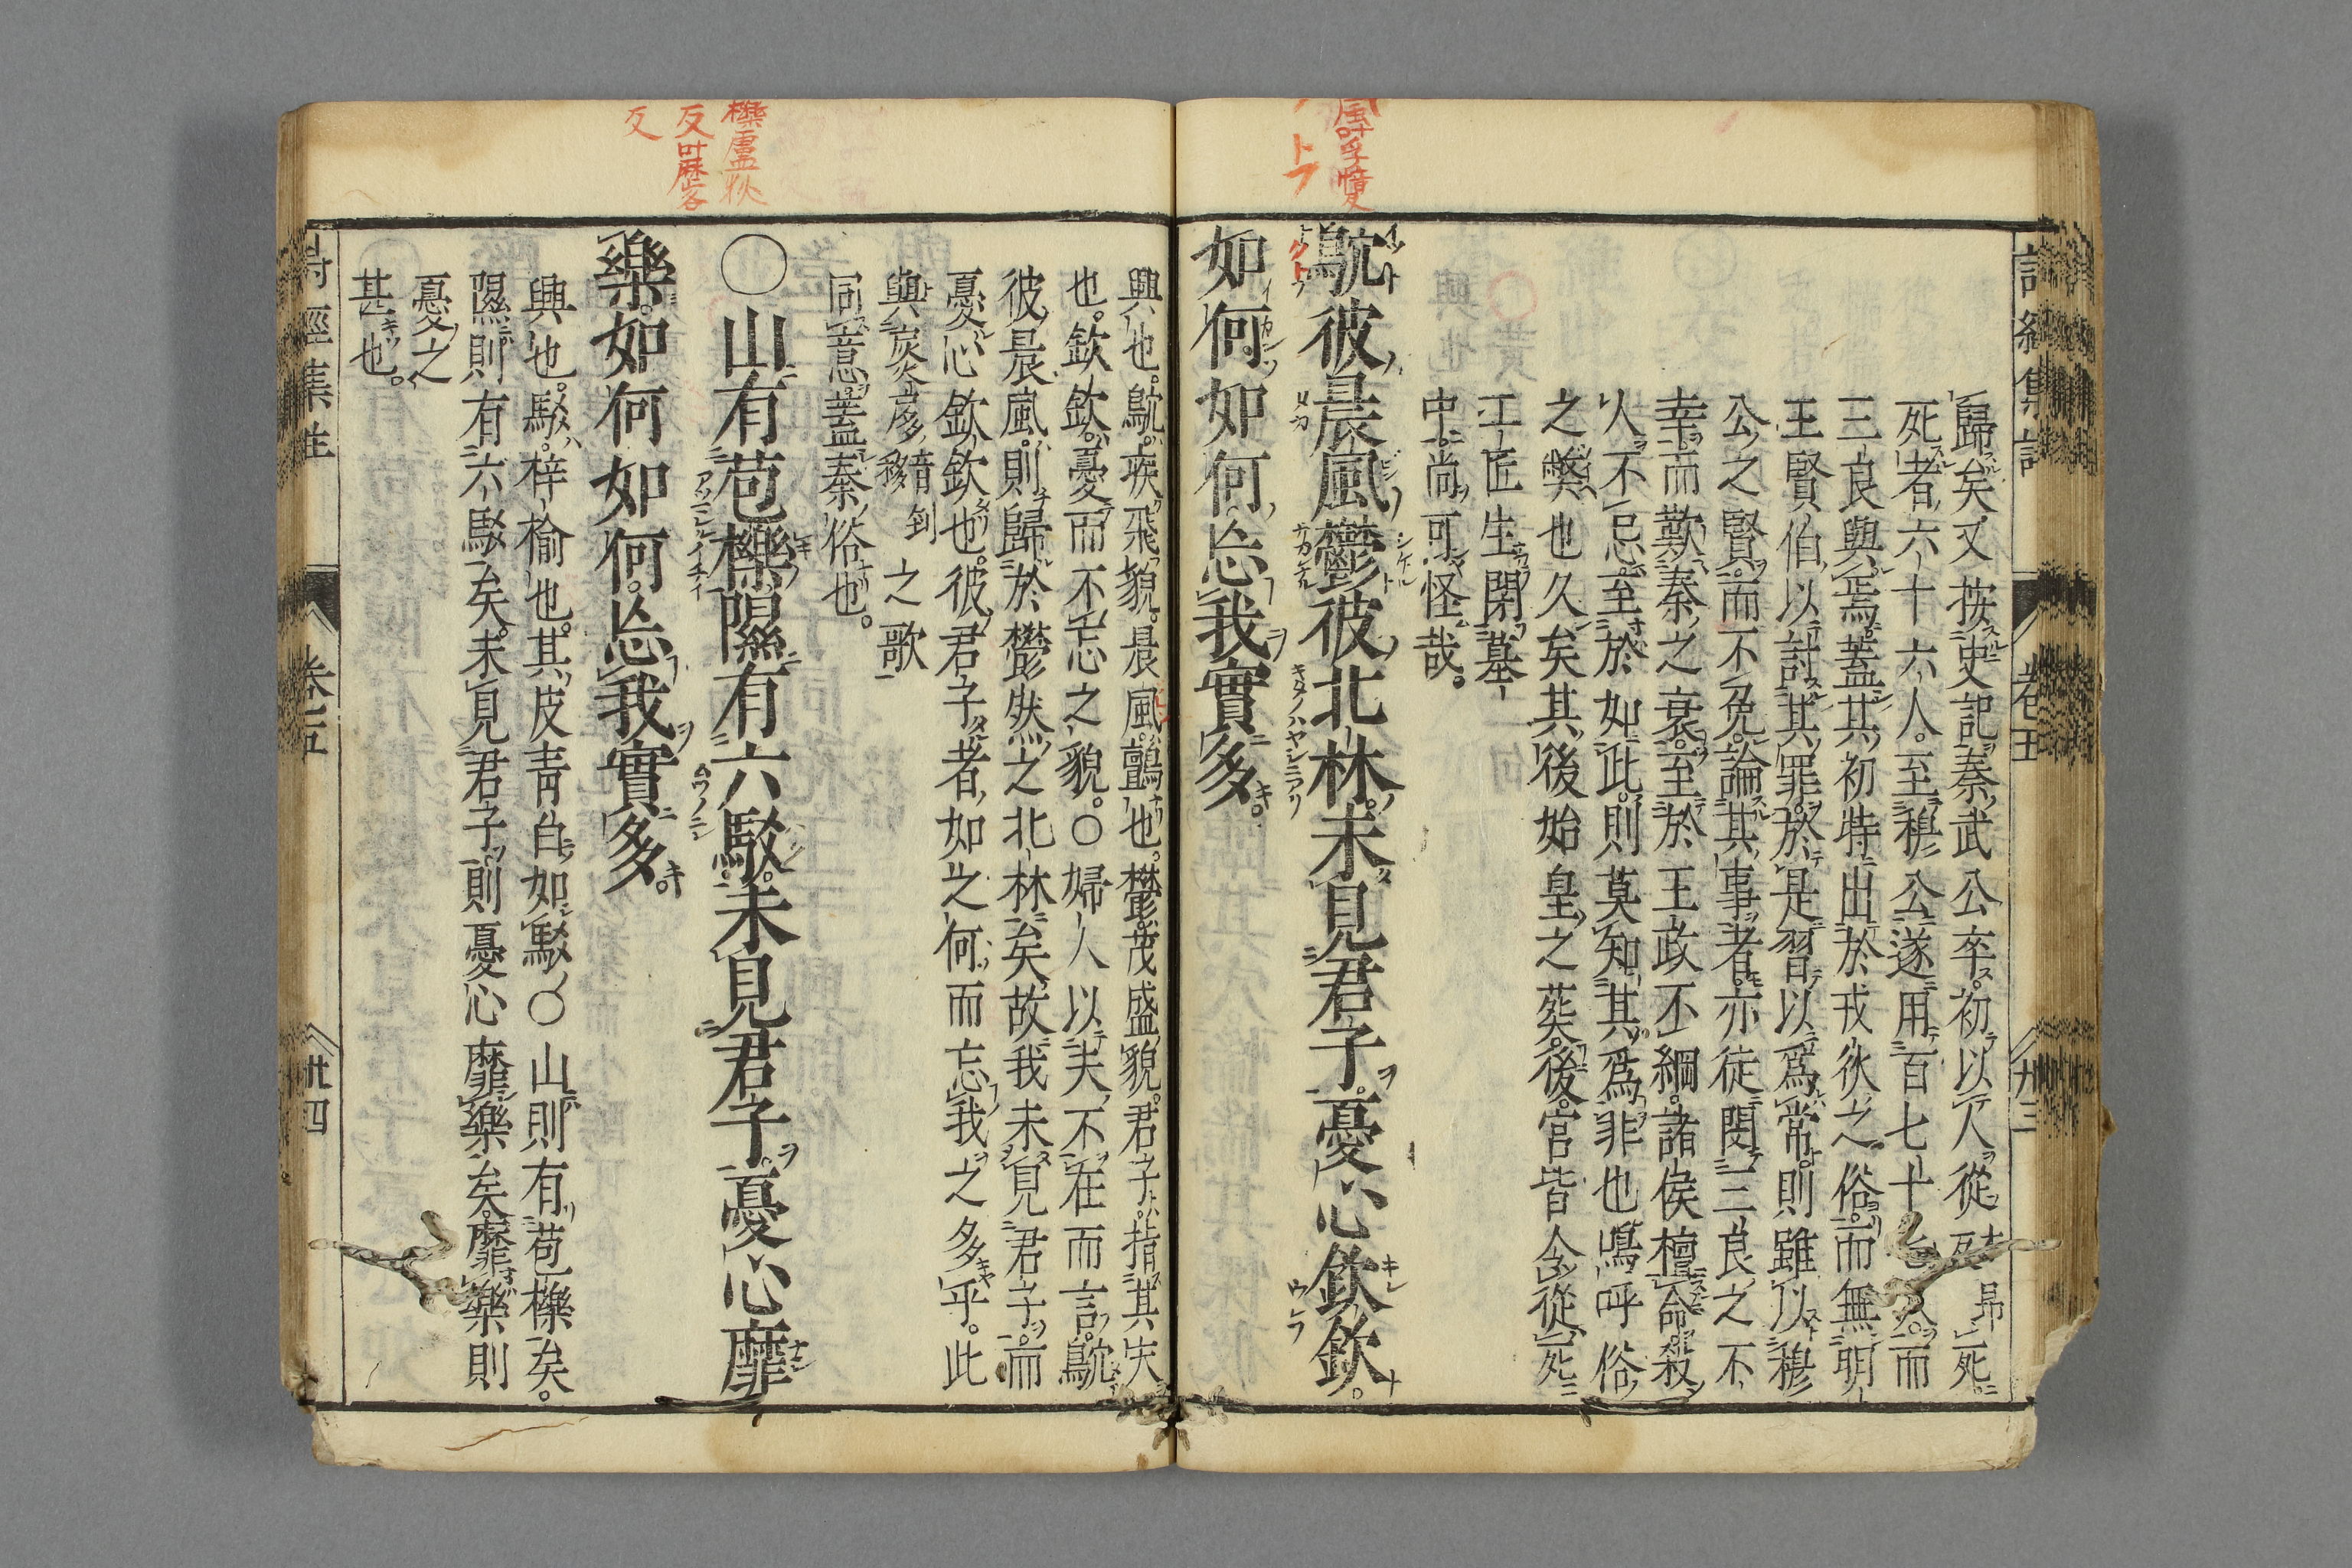 歸矣又按史記秦武公卒初以人從死
死者六十六人。至穆公遂用百七十七人。而
三良與焉蓋其初特出於戎狄之俗而無明
王賢伯以討其罪於是習以爲常則雖以穆
公之賢而不免論其事者亦徒閔三良之不
幸而歎秦之衰至於王政不綱諸侯擅命殺
人不忌至於如此則莫知其爲非也嗚呼俗
之獘也久矣其後始皇之葬後宮皆令從死
工匠生閉墓
中尚可怪哉。
鴥彼晨風鬱彼北林。未見君子。憂心欽欽。
如何如何忘我實多。
興也。鴥疾飛貌。晨風鸇也。鬱茂盛貌。君子指其夫
也。欽欽憂而不忘之貌。○婦人以夫不在而言鴥
彼晨風則歸於鬱然之北林矣故我未見君子而
憂心欽欽也。彼君子者如之何而忘我之多乎。此
與扊扅之歌
同意。蓋秦俗也。
○山有苞櫟隰有六駮。未見君子。憂心靡
樂。如何如何。忘我實多。
興也。駮梓榆也。其皮青白如駮○山則有苞櫟矣。
隰則有六駮矣。未見君子則憂心靡樂矣。靡樂則
憂之
甚也。
詩經集註
卷五
卅三
詩經集註
卷五
卅四
櫟盧狄
反叶歷各
反
風叶孚愔